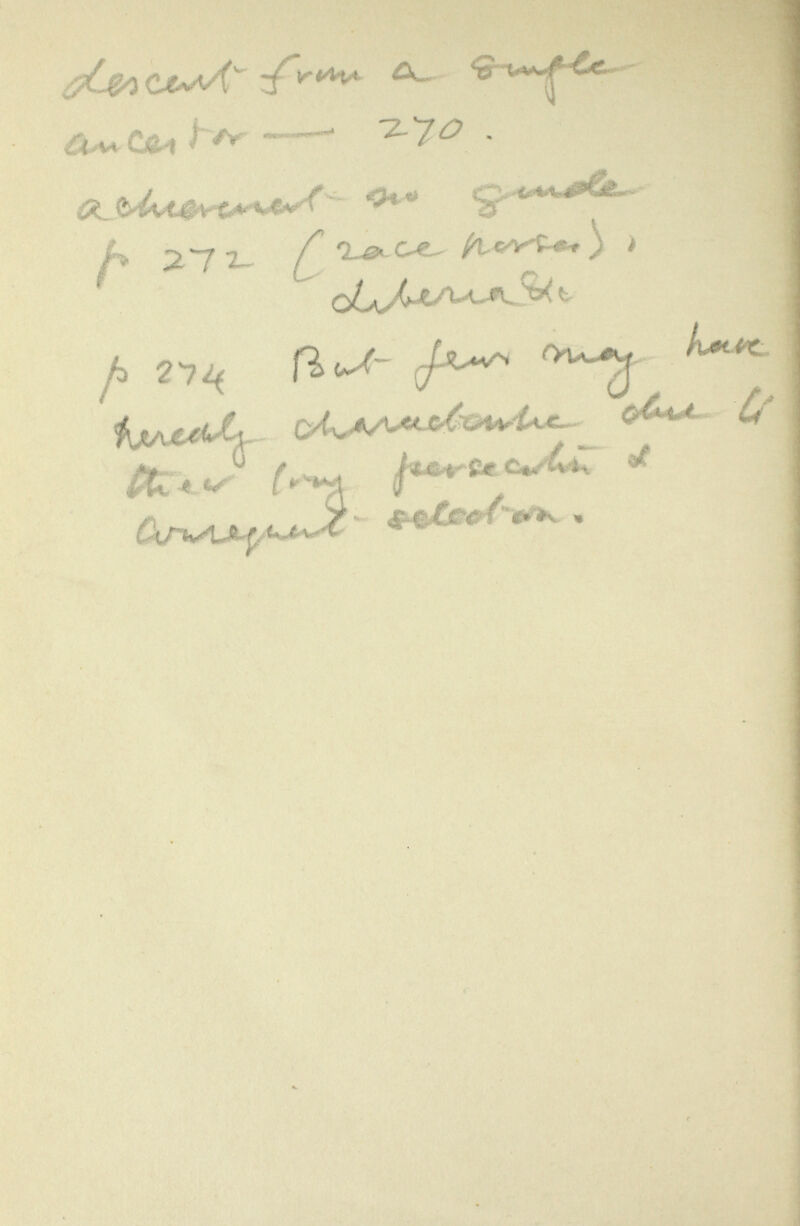 descent from a single
ancestor — 270.
achievement no guide
p 272 (race horses),
Liberia &c
p 274 But Jews may have
heredity characteristic due to
their long persecution &
consequent selection.